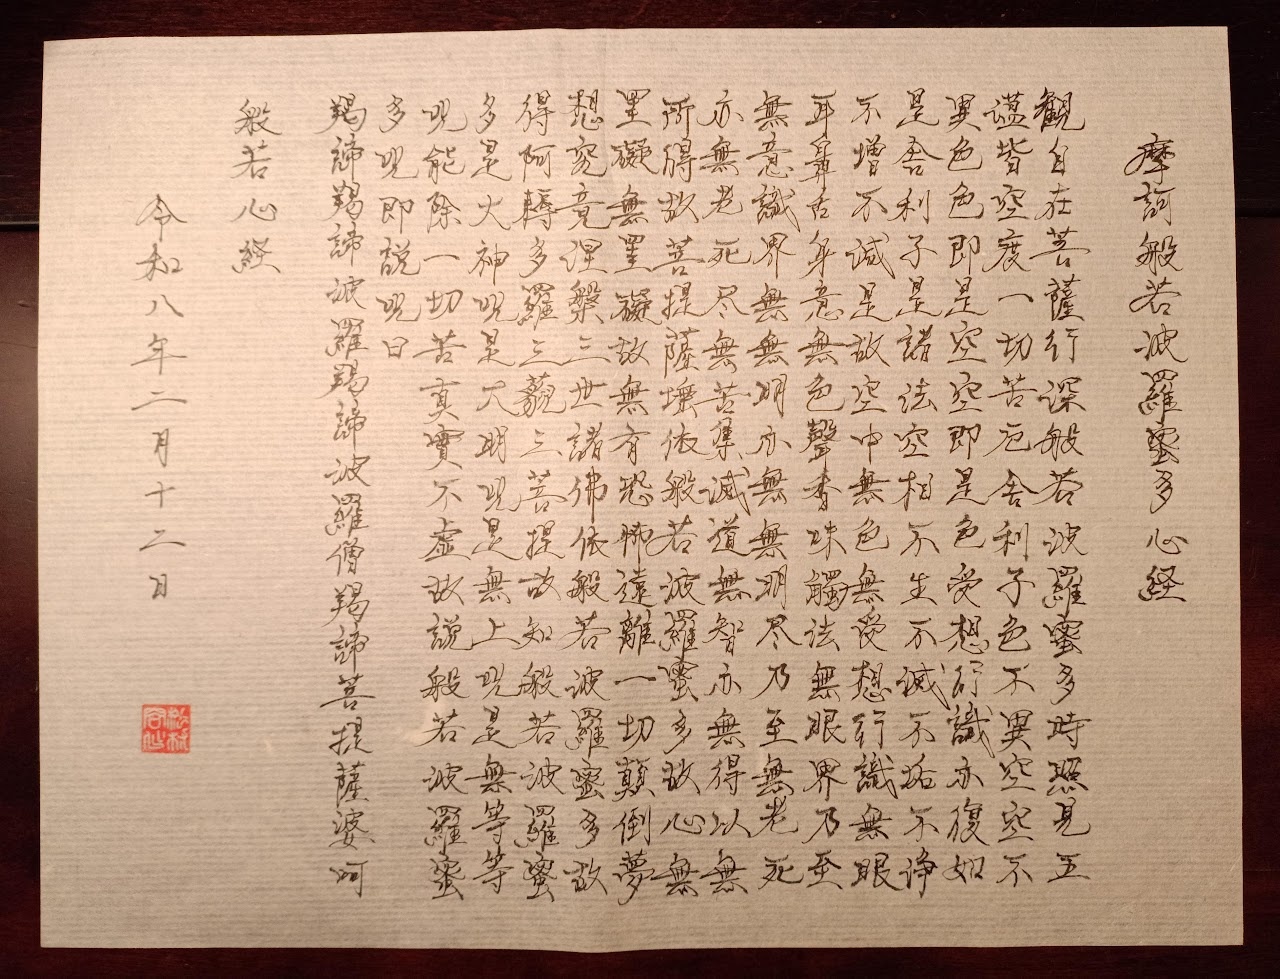 摩訶般若波羅蜜多心経
観自在菩薩行深般若波羅蜜多時照見五
蘊皆空度一切苦厄舎利子色不異空空不
異色色即是空空即是色受想行識亦復如
是舎利子是諸法空相不生不滅不垢不浄
不増不減是故空中無色無受想行識無眼
耳鼻舌身意無色聲香味觸法無眼界乃至
無意識界無無明亦無無明尽乃至無老死
亦無老死尽無苦集滅道無智亦無得以無
所得故菩提薩埵依般若波羅蜜多故心無
罣礙無罣礙故無有恐怖遠離一切顛倒夢
想究竟涅槃三世諸佛依般若波羅蜜多故
得阿耨多羅三藐三菩提故知般若波羅蜜
多是大神呪是大明呪是無上呪是無等等
呪能除一切苦真實不虚故説般若波羅蜜
多呪即説呪曰
羯諦羯諦波羅羯諦波羅僧羯諦菩提薩婆呵
般若心経
令和八年二月十二日